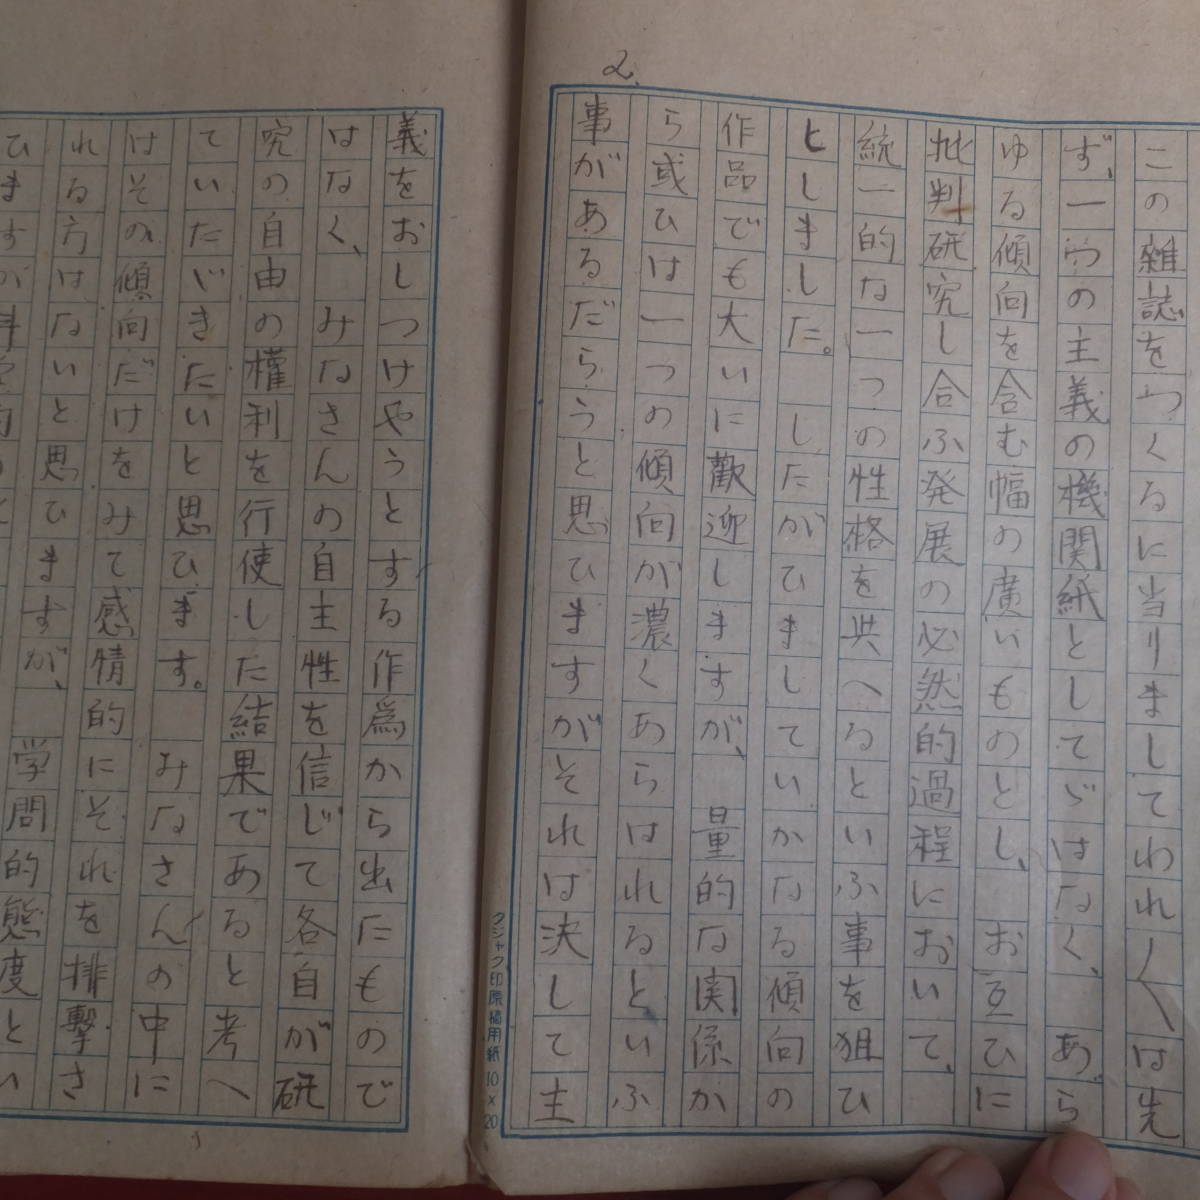 2.
この雑誌をつくるに当りましてわれ〱は先
ず、一つの主義の機関紙としてゞはなく、あら
ゆる傾向を含む幅の廣いものとし、お互ひに
批判研究し合ふ発展の必然的過程において、
統一的な一つの性格を与へるといふ事を狙ひ
としました。したがひましていかなる傾向の
作品でも大いに歡迎しますが、量的な関係か
ら或ひは一つの傾向が濃くあらはれるといふ
事があるだらうと思ひますがそれは決して主
クジャク印原稿用紙10×20
義をおしつけやうとする作爲から出たもので
はなく、みなさんの自主性を信じて各自が研
究の自由の權利を行使した結果であると考へ
ていたゞきたいと思ひます。みなさんの中に
はその傾向だけをみて感情的にそれを排撃さ
れる方はないと思ひますが、
学問的態度とい